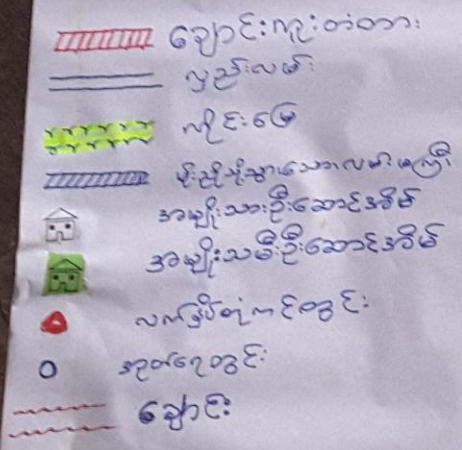 ချောင်းကူးတံတား
လှည်းလမ်း
လိုင်းမြေ
မိုးညိုသို့သွားသောလမ်းမကြီး
အမျိုးသားဦးဆောင်အိမ်
အမျိုးသမီးဦးဆောင်အိမ်
လက်နှိပ်တုံကင်တွင်း
အုတ်ရေတွင်း
ချောင်း